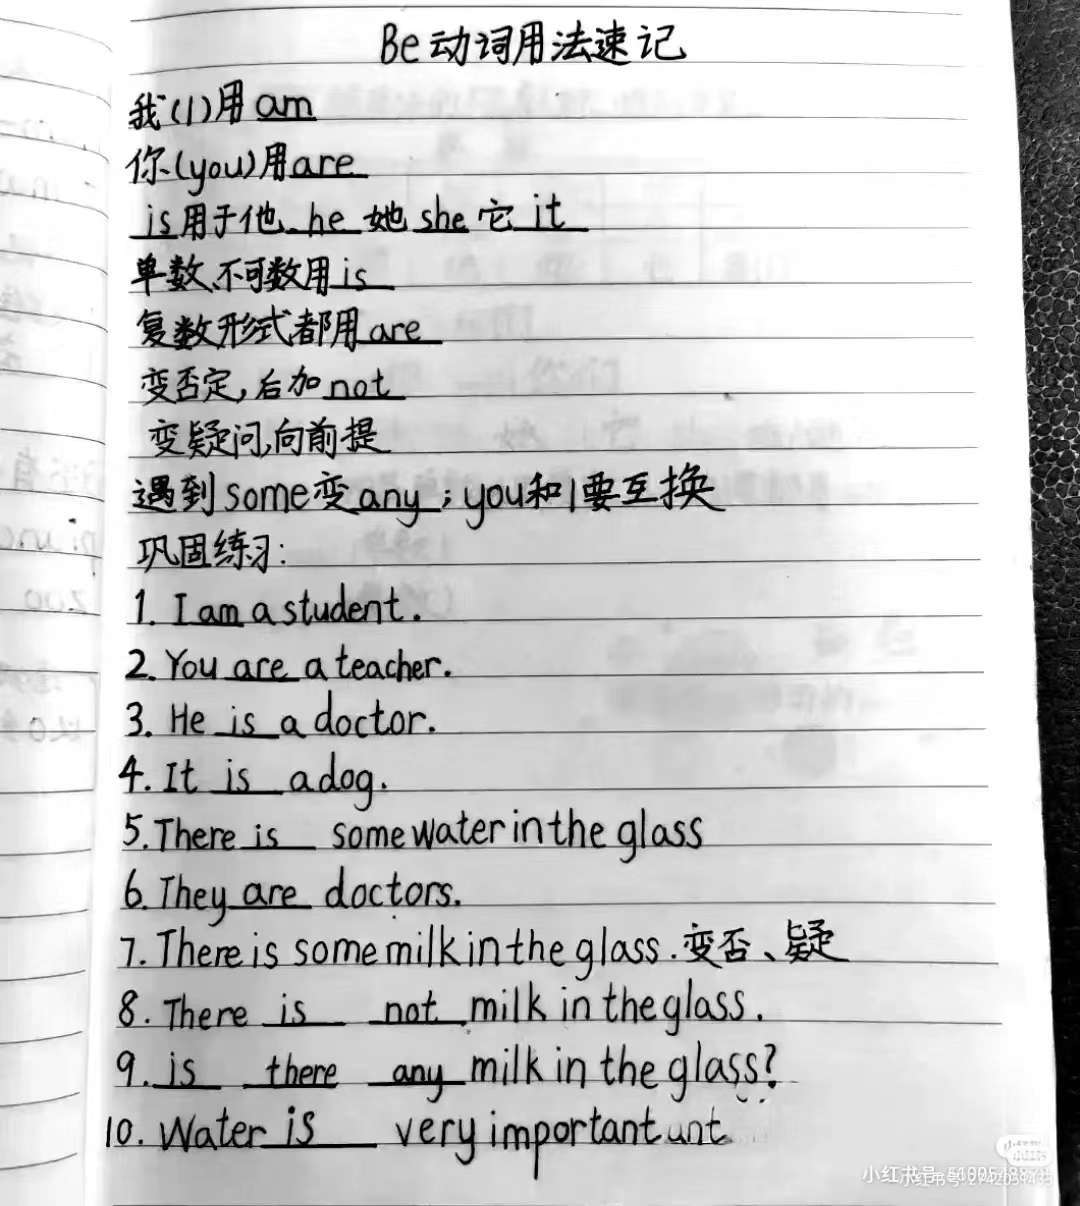 Be动词用法速记
我(I)用am
你(you)用are
is用于他 he 她 she 它 it
单数、不可数用is
复数形式都用are
变否定,后加not
变疑问,向前提
遇到some变any;you和I要互换
巩固练习:
1. I am a student.
2. You are a teacher.
3. He is a doctor.
4. It is a dog.
5. There is some water in the glass
6. They are doctors.
7. There is some milk in the glass. 变否、疑
8. There is not milk in the glass.
9. is there any milk in the glass?
10. Water is very important unt
小红书号